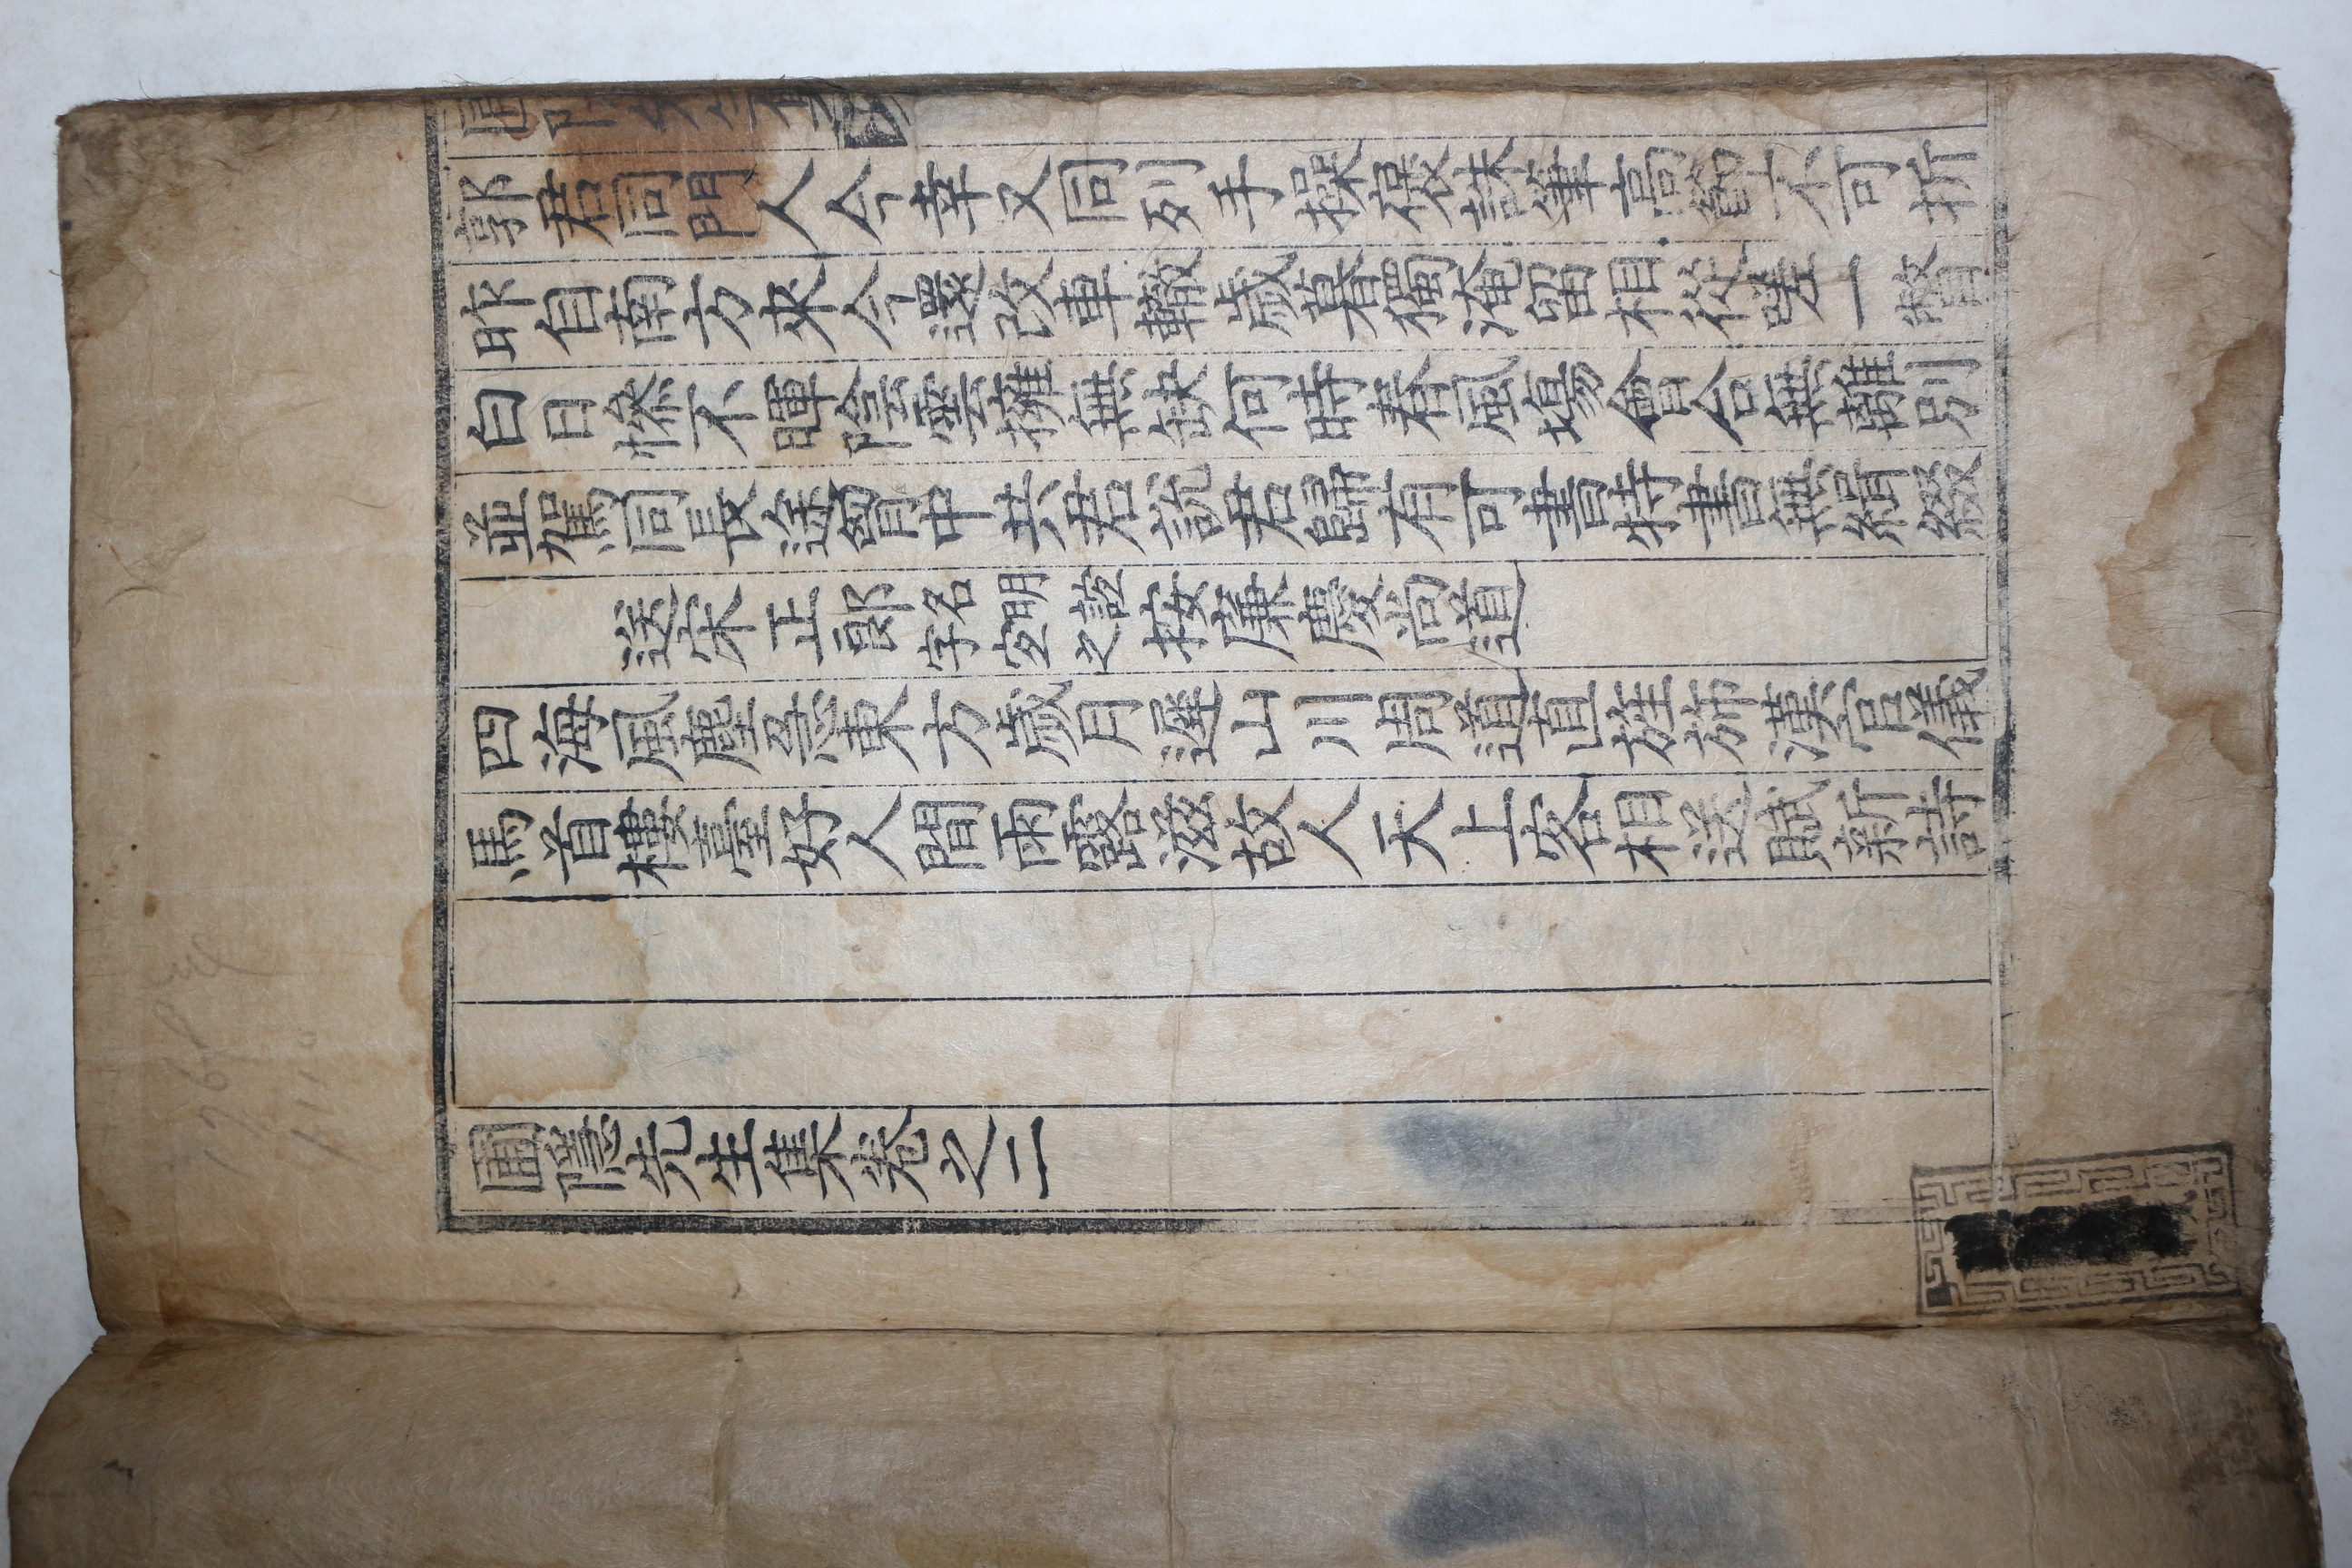 郭君同門人今幸又同列手操筆高節不可折
昨自南方來今還改車轍歲暮獨淹留相從嗟一瞥
白日慘不暉陰雲擁無缺何時春風場會合無離別
並駕同長途胷中共君說君歸有可書特書無補綴
送宋正郎名明誼字之按廉慶尚道
四海風塵急東方歲月遲山川周道直旌旆漢官儀
馬首樓臺好人間雨露滋故人天上客相送賦新詩
圃隱先生集卷之二